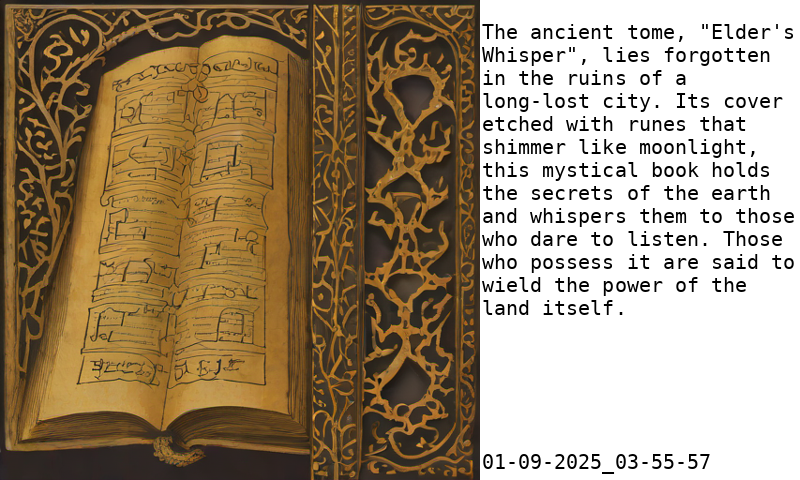 The ancient tome, "Elder's
Whisper", lies forgotten
in the ruins of a
long-lost city. Its cover
etched with runes that
shimmer like moonlight,
this mystical book holds
the secrets of the earth
and whispers them to those
who dare to listen. Those
who possess it are said to
wield the power of the
land itself.
01-09-2025_03-55-57